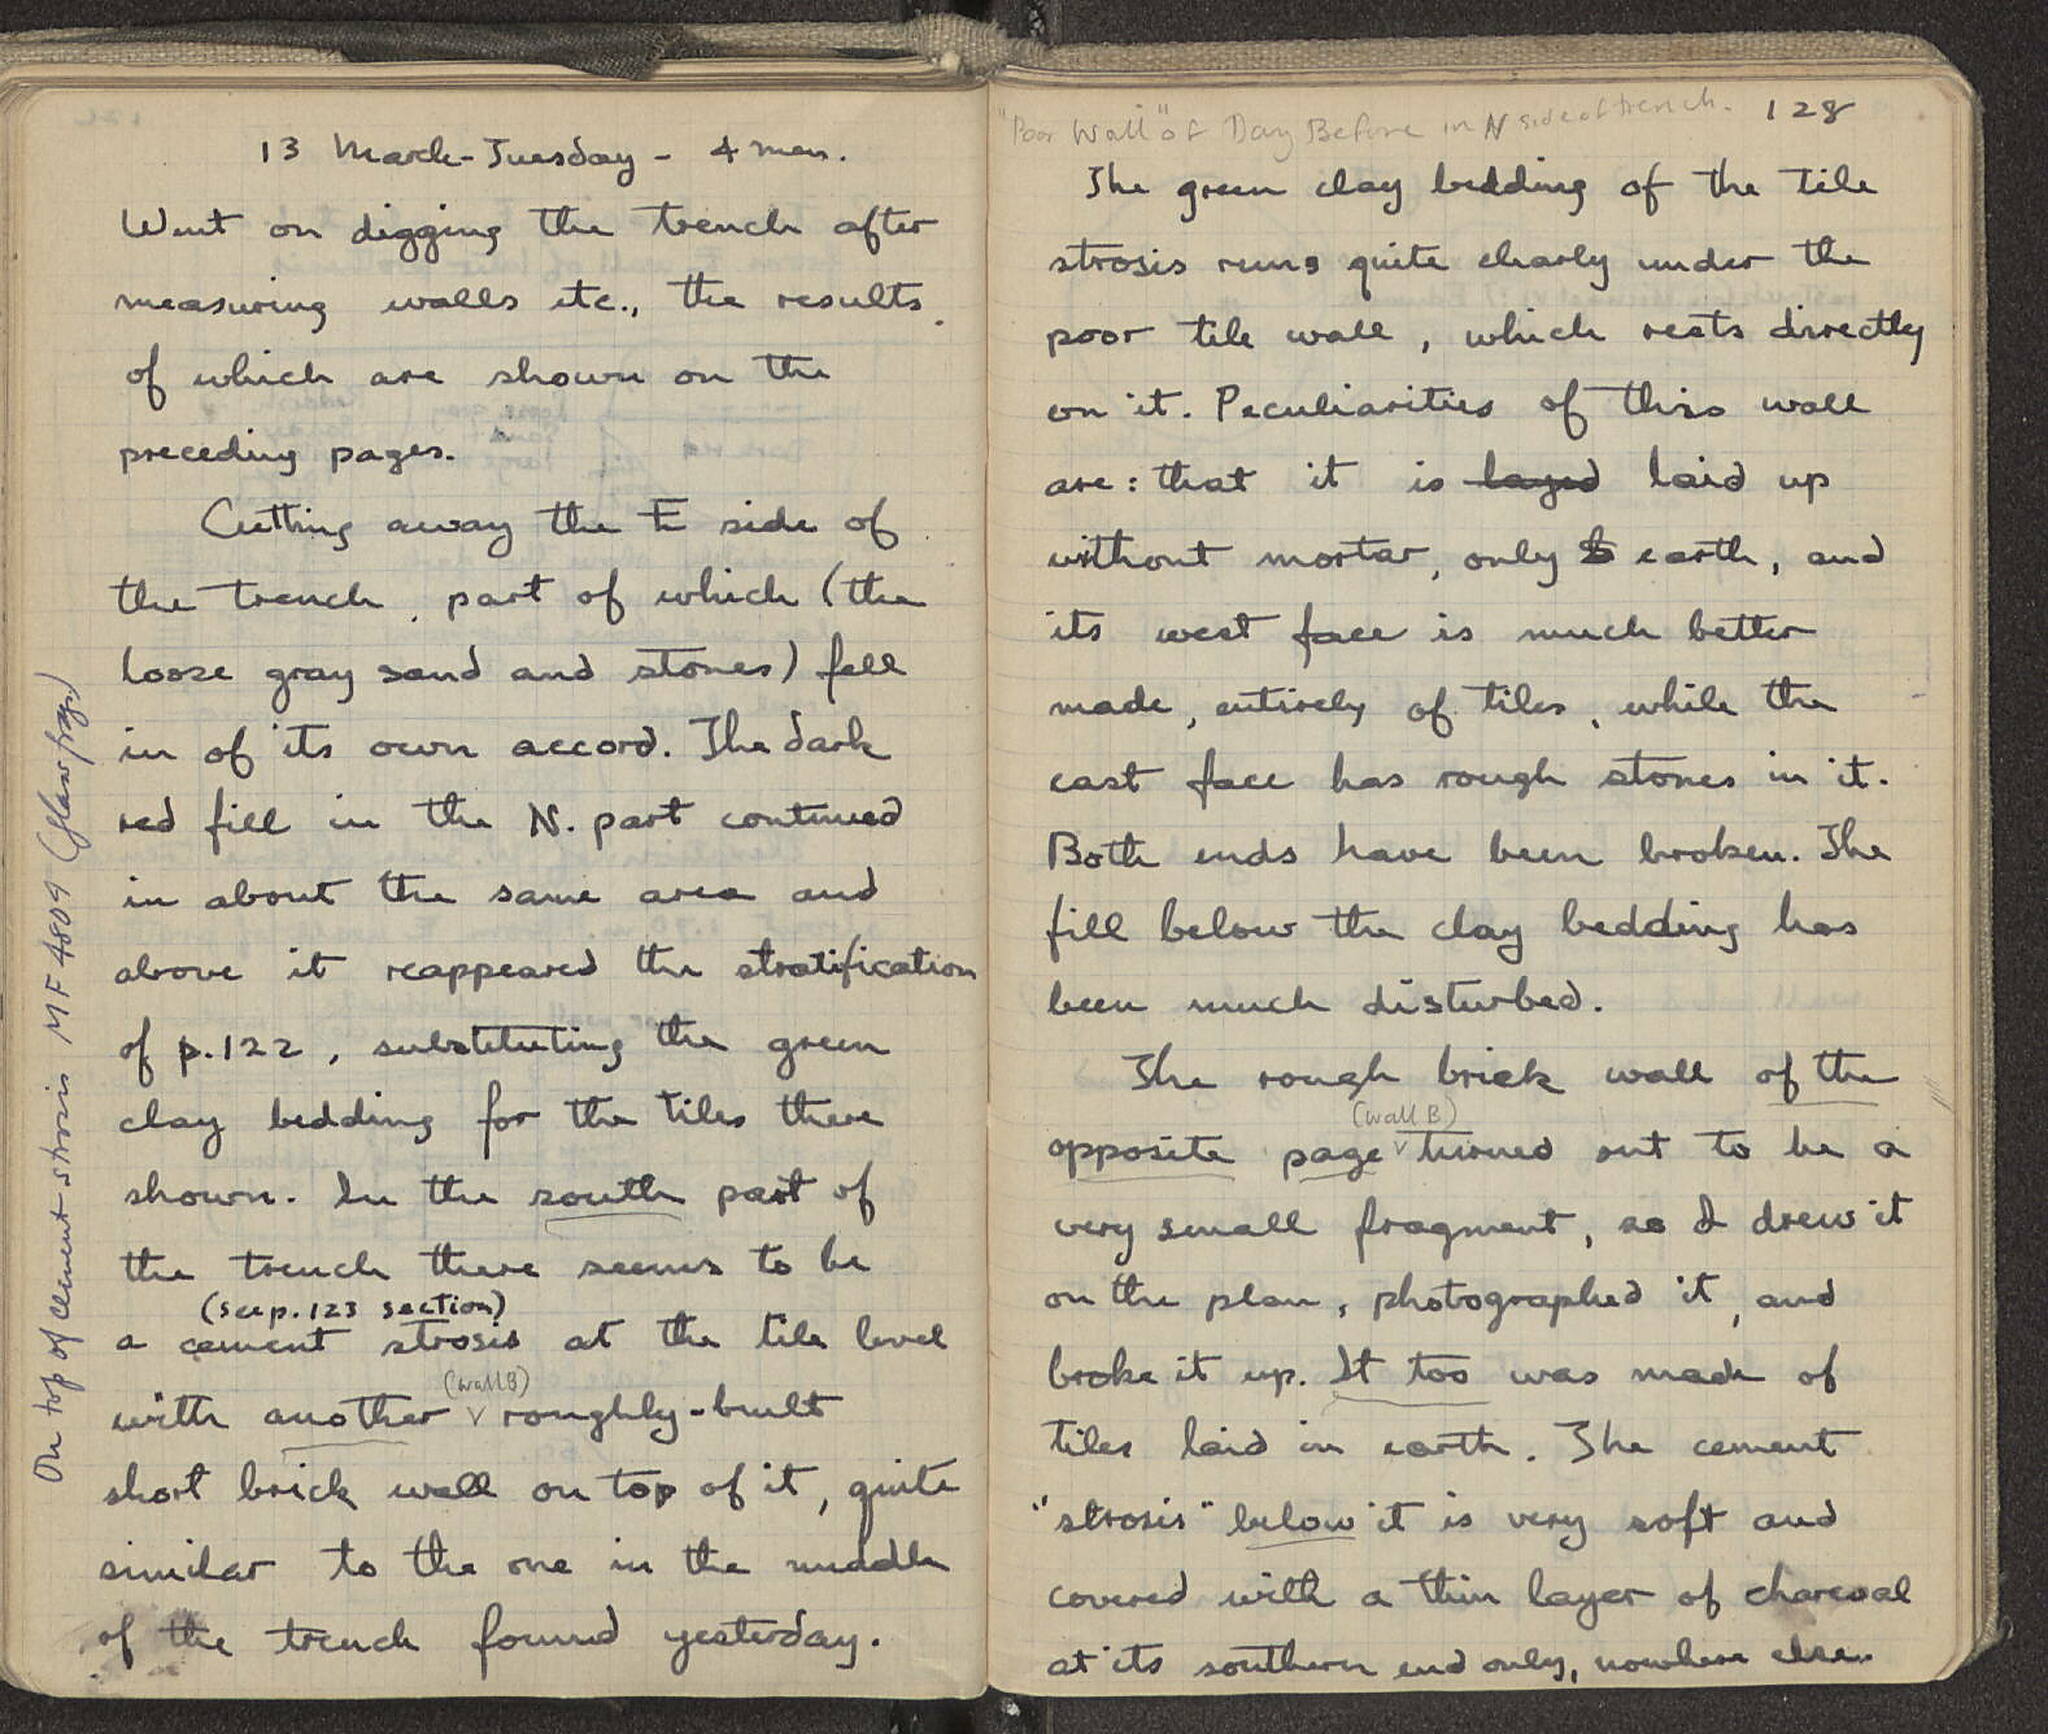 13 March - Tuesday - 4 men.
Went on digging the trench after
measuring walls etc., the results
of which are shown on the
preceding pages.
Cutting away the E side of
the trench, part of which (the
loose gray sand and stones) fell
in of its own accord. The dark
red fill in the N. part continued
in about the same area and
above it reappeared the stratification
of p.122, substituting the green
clay bedding for the tiles there
shown. In the south part of
the trench there seems to be
(see p. 123 section)
a cement strosis at the tile level
(wall B)
with another ˅ roughly-built
short brick wall on top of it, quite
similar to the one in the middle
of the trench found yesterday.
On top of cement strosis MF 4809 (glass frag.)
"Poor Wall" of Day Before in N side of trench. 128
The green clay bedding of the tile
strosis runs quite clearly under the
poor tile wall, which rests directly
on it. Peculiarities of this wall
are: that it is layed laid up
without mortar, only earth, and
its west face is much better
made, entirely of tiles, while the
east face has rough stones in it.
Both ends have been broken. The
fill below the clay bedding has
been much disturbed.
The rough brick wall of the
(wall B)
opposite page ˅ turned out to be a
very small fragment, so I drew it
on the plan, photographed it, and
broke it up. It too was made of
tiles laid in earth. The cement
"strosis" below it is very soft and
covered with a thin layer of charcoal
at its southern end only, nowhere else.